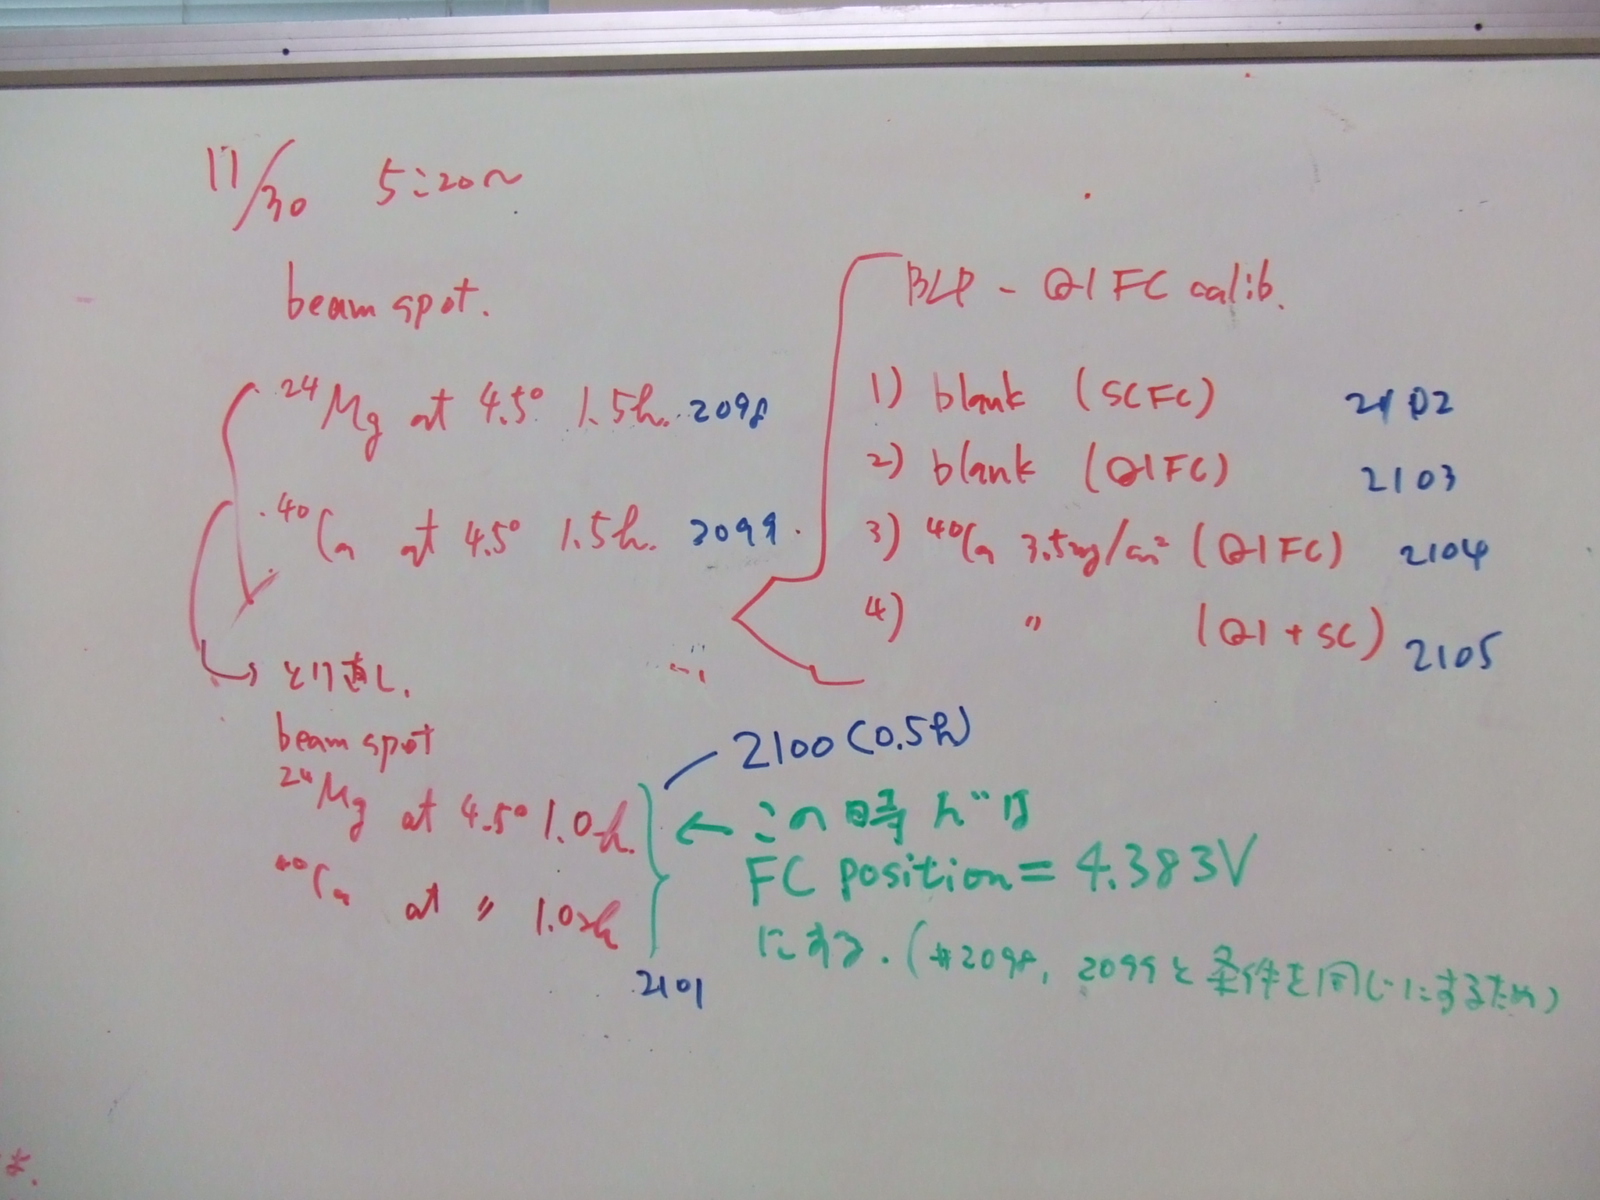 11/30 5:20~
beam spot.
24Mg at 4.5° 1.5h. 2098
40Ca at 4.5° 1.5h. 2099
→ とり直し.
beam spot
24Mg at 4.5° 1.0h.
40Ca at 〃 1.0h
2101
BLP - Q1FC calib.
1) blank (SCFC) 2102
2) blank (Q1FC) 2103
3) 40Ca 3.5mg/cm² (Q1FC) 2104
4) 〃 (Q1+SC) 2105
2100 (0.5h)
← この時んは
FC position = 4.383V
にする. (#2098, 2099と条件を同じにするため)